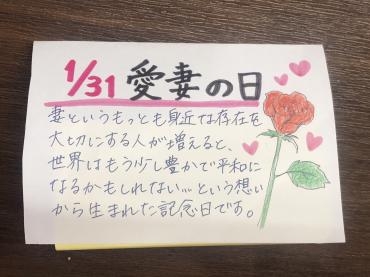 1/31 愛妻の日
妻というもっとも身近な存在を
大切にする人が増えると、
世界はもう少し豊かで平和に
なるかもしれない…という想い
から生まれた記念日です。